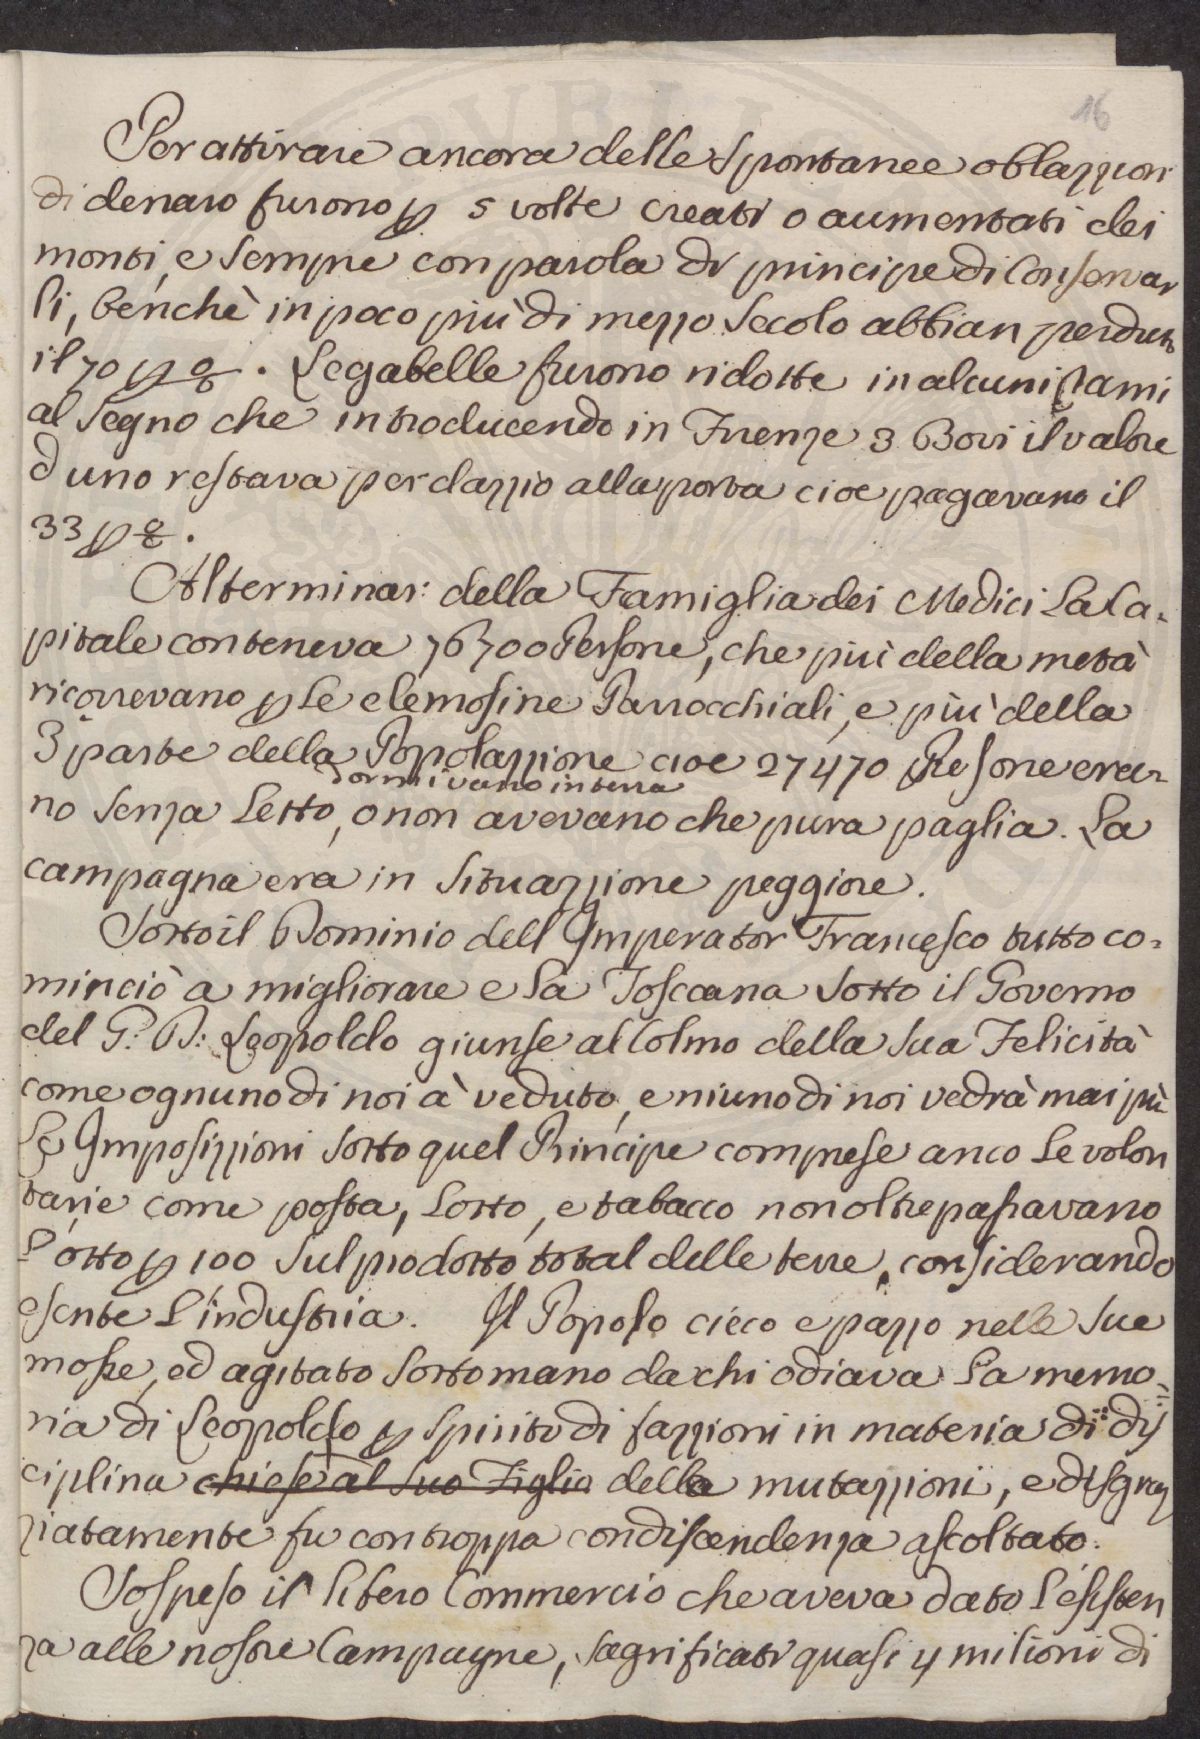 16
Per attirare ancora delle Spontanee oblazzioni
di denaro furono p 5 volte creati o aumentati dei
monti, e sempre con parola di principe di Conservar
li, benchè in poco più di mezzo Secolo abbian perduto
il 70 p %. Le gabelle furono ridotte in alcuni Rami
al Segno che introducendo in Firenze 3 Bovi il valore
d'uno restava per dazzio alla porta cioe pagavano il
33 p %.
Al terminar: della Famiglia dei Medici La Ca-
pitale conteneva 76700 Persone, che più della metà
ricorrevano p le elemosine Parrocchiali, e più della
3 parte della Popolazzione cioe 27470 Persone era-
dormivano in terra
no senza Letto, o non avevano che pura paglia. La
campagna era in Situazzione peggiore.
Sotto il Dominio dell Imperator Francesco tutto co-
minciò a migliorare e la Toscana sotto il Governo
del G: D: Leopoldo giunse al Colmo della Sua Felicità
come ognuno di noi à veduto, e niuno di noi vedrà mai più
Le Imposizzioni sotto quel Principe comprese anco le volon
tarie come posta, Lotto, e tabacco non oltrepassavano
l'otto p 100 sul prodotto total delle terre, considerando
esente l'industria. Il Popolo cieco e pazzo nelle Sue
mosse, ed agitato Sottomano da chi odiava la memo-
ria di Leopoldo p spirito di fazzioni in materia di dis
ciplina chiese al suo Figlio delle mutazzioni, e disgraz
ziatamente fu con troppa condiscendenza ascoltato.
Sospeso il libero Commercio che aveva dato l'esisten
za alle nostre Campagne, sagrificati quasi 4 milioni di